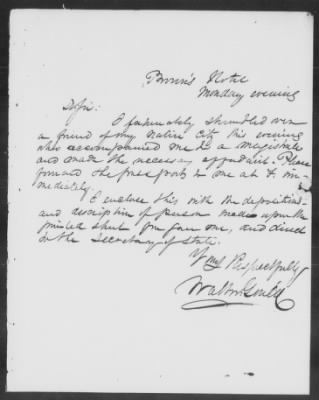 Brown's Hotel
Monday evening
D Sir:
I fortunately stumbled over
a friend of my native city this evening
who accompanied me to a magistrate
and made the necessary affidavit. Please
forward the pass ports to me at
mediately.
I enclose this with the deposition
and description of person made upon the
printed sheet you gave me, and direct
to the Secretary of State.
Respectfully